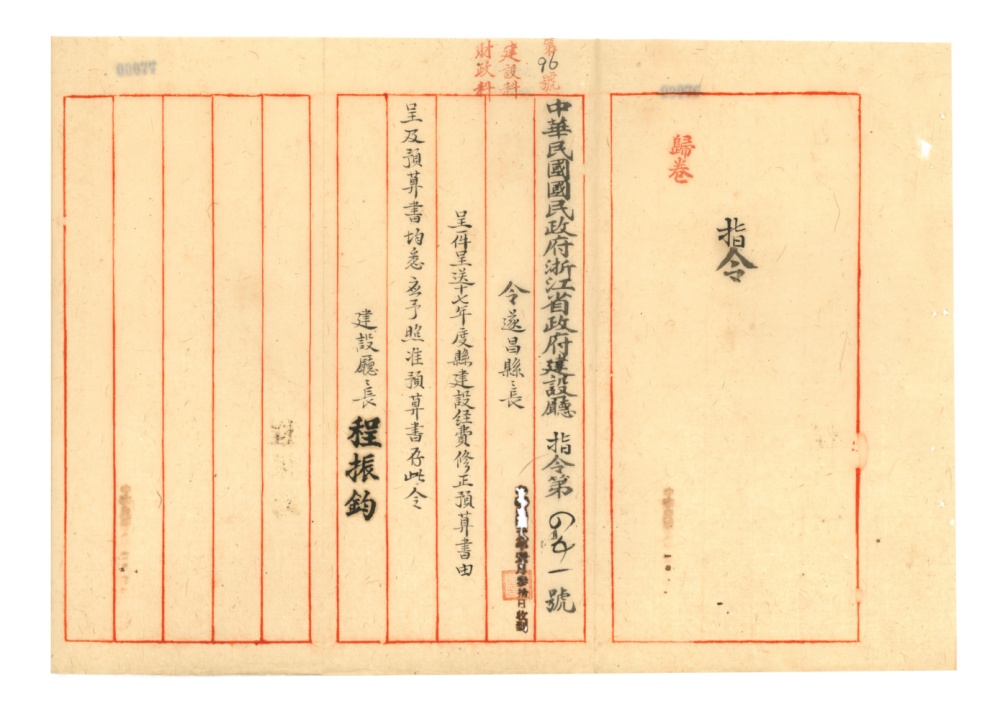 指令
歸卷
第96號
建設科
財政科
中華民國國民政府浙江省政府建設廳 指令第 一號
令遂昌縣縣長
呈一件呈送十七年度縣建設經費修正預算書由
呈及預算書均悉應予照准預算書存此令
建設廳廳長 程振鈞